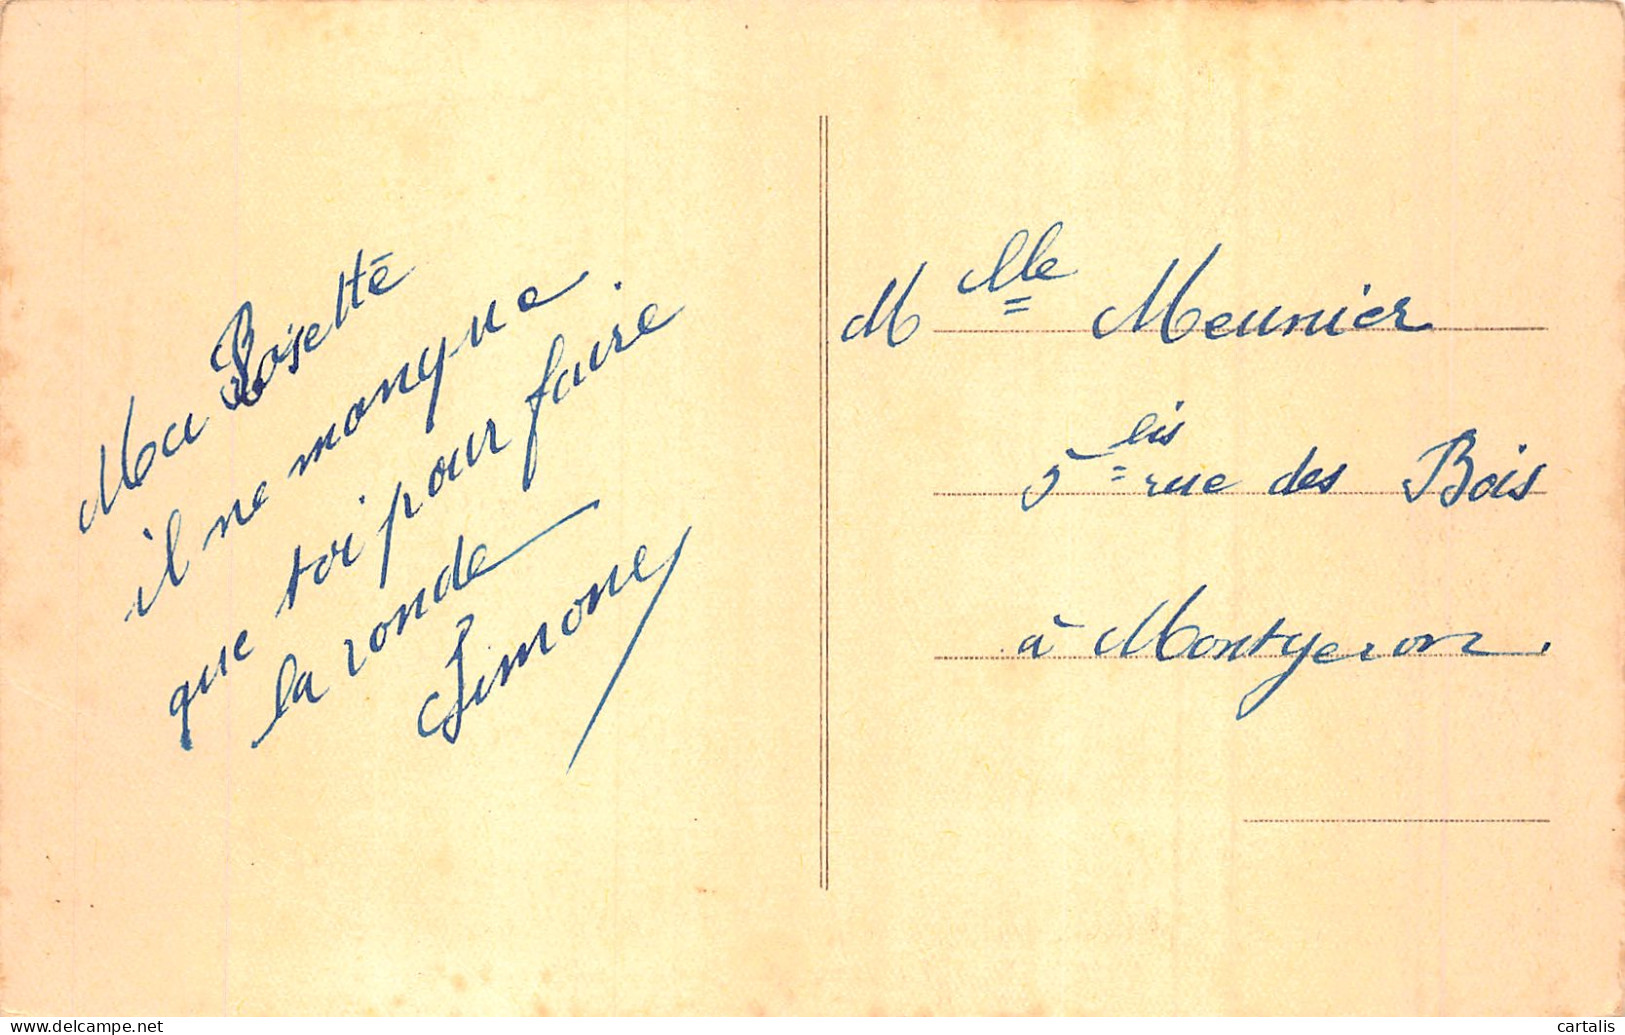 Ma Rosette
il ne manque
que toi pour faire
la ronde
Simone
Mlle Meunier
5 bis rue des Bois
à Montgeron.
www.delcampe.net
cartalis